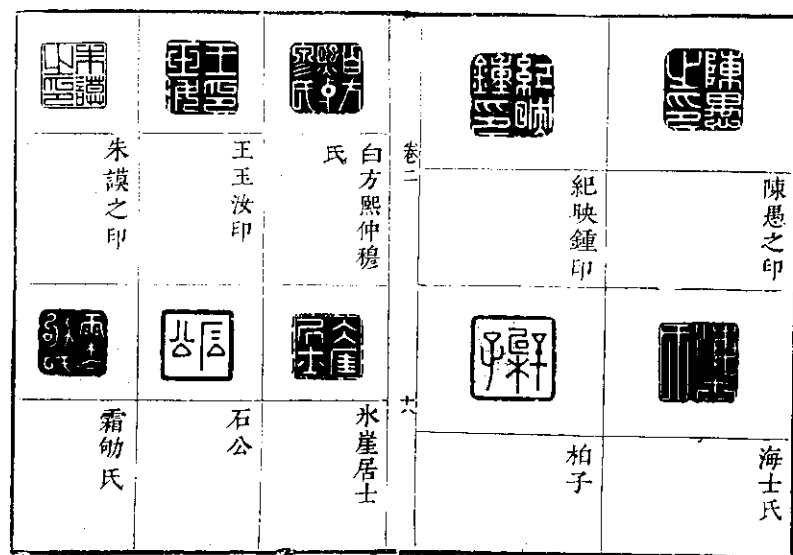 陳愚之印
紀映鍾印
海士氏
柏子
卷二
十八
白方熙仲穆
氏
王玉汝印
朱謨之印
氷崖居士
石公
霜劬氏